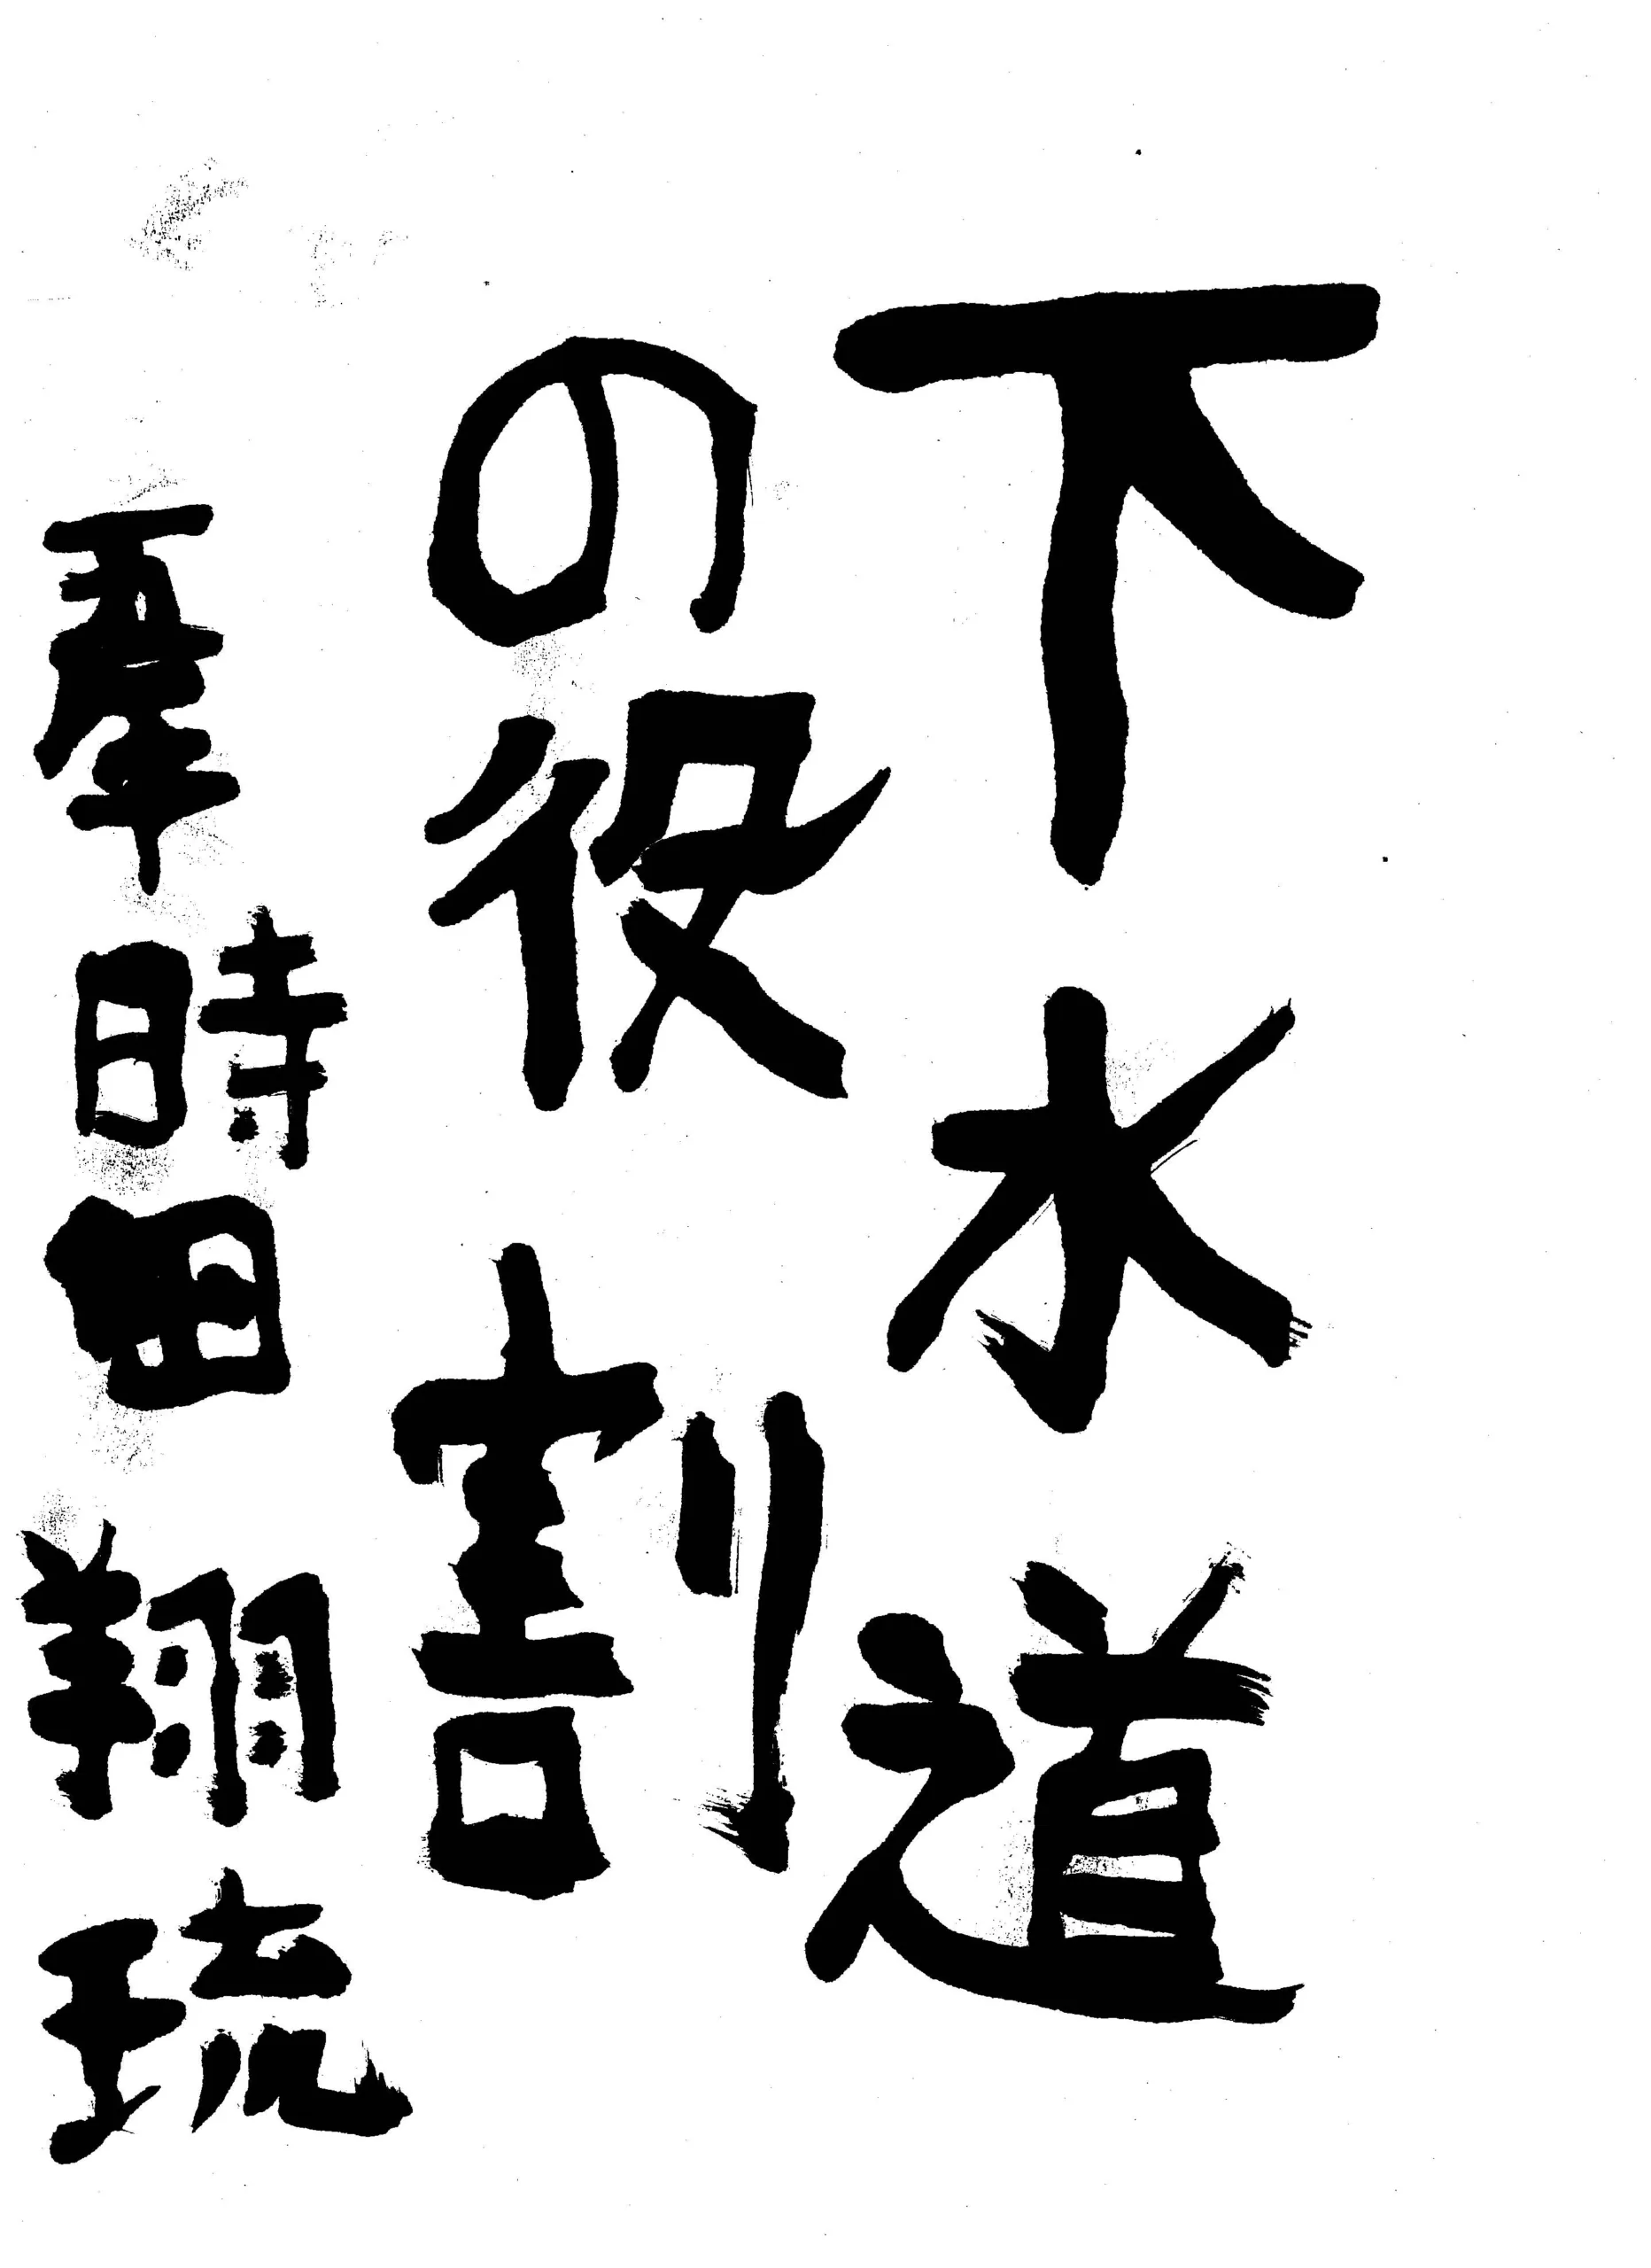 下水道
の役割
五年 時田 翔琉